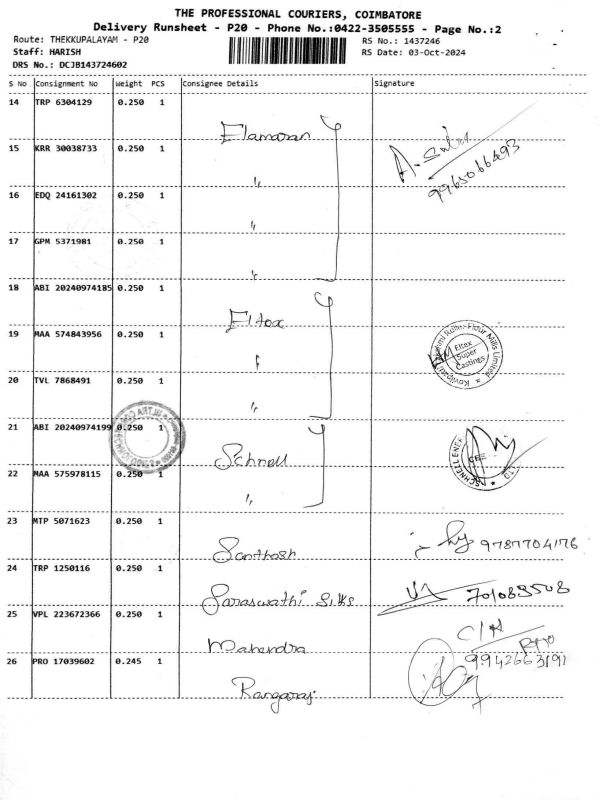 THE PROFESSIONAL COURIERS, COIMBATORE
Delivery Runsheet - P20 - Phone No.:0422-3505555 - Page No.:2
Route: THEKKUPALAYAM - P20
RS No.: 1437246
Staff: HARISH
RS Date: 03-Oct-2024
DRS No.: DCJB143724602
S No Consignment No Weight PCS Consignee Details Signature
14 TRP 6304129 0.250 1
Elamaran
A.
15 KRR 30038733 0.250 1
9965066493
"
16 EDQ 24161302 0.250 1
"
17 GPM 5371981 0.250 1
"
18 ABI 20240974185 0.250 1
Eltex
19 MAA 574843956 0.250 1
Roller Flour Mills Limited
Eltex
Super
Castings
"
20 TVL 7868491 0.250 1
"
21 ABI 20240974199 0.250 1
Schnell
22 MAA 575978115 0.250 1
"
23 MTP 5071623 0.250 1
Santhosh
9787704176
24 TRP 1250116 0.250 1
Saraswathi Silks
25 VPL 223672366 0.250 1
C/H
Mahendra
9942663191
26 PRO 17039602 0.245 1
Rangaraj